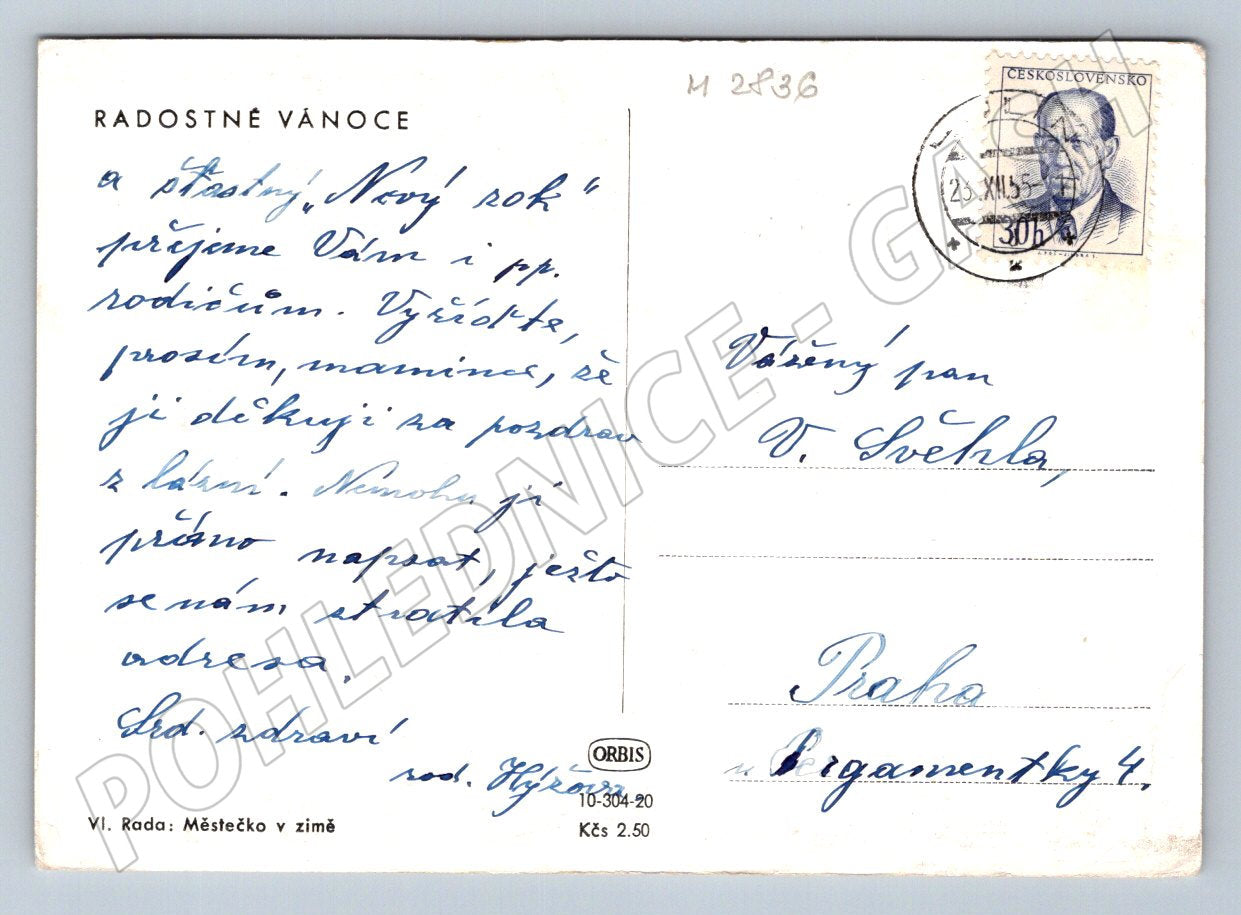 M 2836
ČESKOSLOVENSKO
23.XII.55
30h
RADOSTNÉ VÁNOCE
a šťastný „Nový rok"
přejeme Vám i pp.
rodičům. Vyřiďte,
prosím, mamince, že
jí děkuji za pozdrav
z lázní. Nemohu jí
přímo napsat, ježto
se nám ztratila
adresa.
Srd. zdraví
rod. Hýžova
Vl. Rada: Městečko v zimě
ORBIS
10-304-20
Kčs 2.50
Vážený pan
V. Světla,
Praha
u Pergamentky 4.
POHLEDNICE - GASH